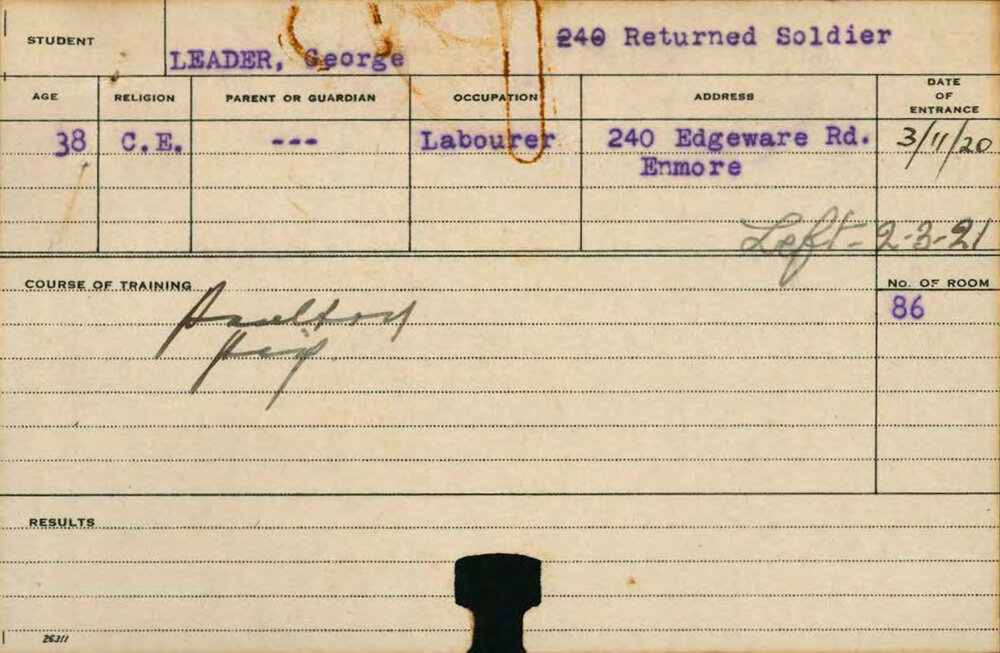 STUDENT
LEADER, George
240 Returned Soldier
AGE
RELIGION
PARENT OR GUARDIAN
OCCUPATION
ADDRESS
DATE OF ENTRANCE
38
C.E.
---
Labourer
240 Edgeware Rd.
Enmore
3/11/20
Left - 2-3-21
COURSE OF TRAINING
Poultry
No. OF ROOM
86
RESULTS
26311